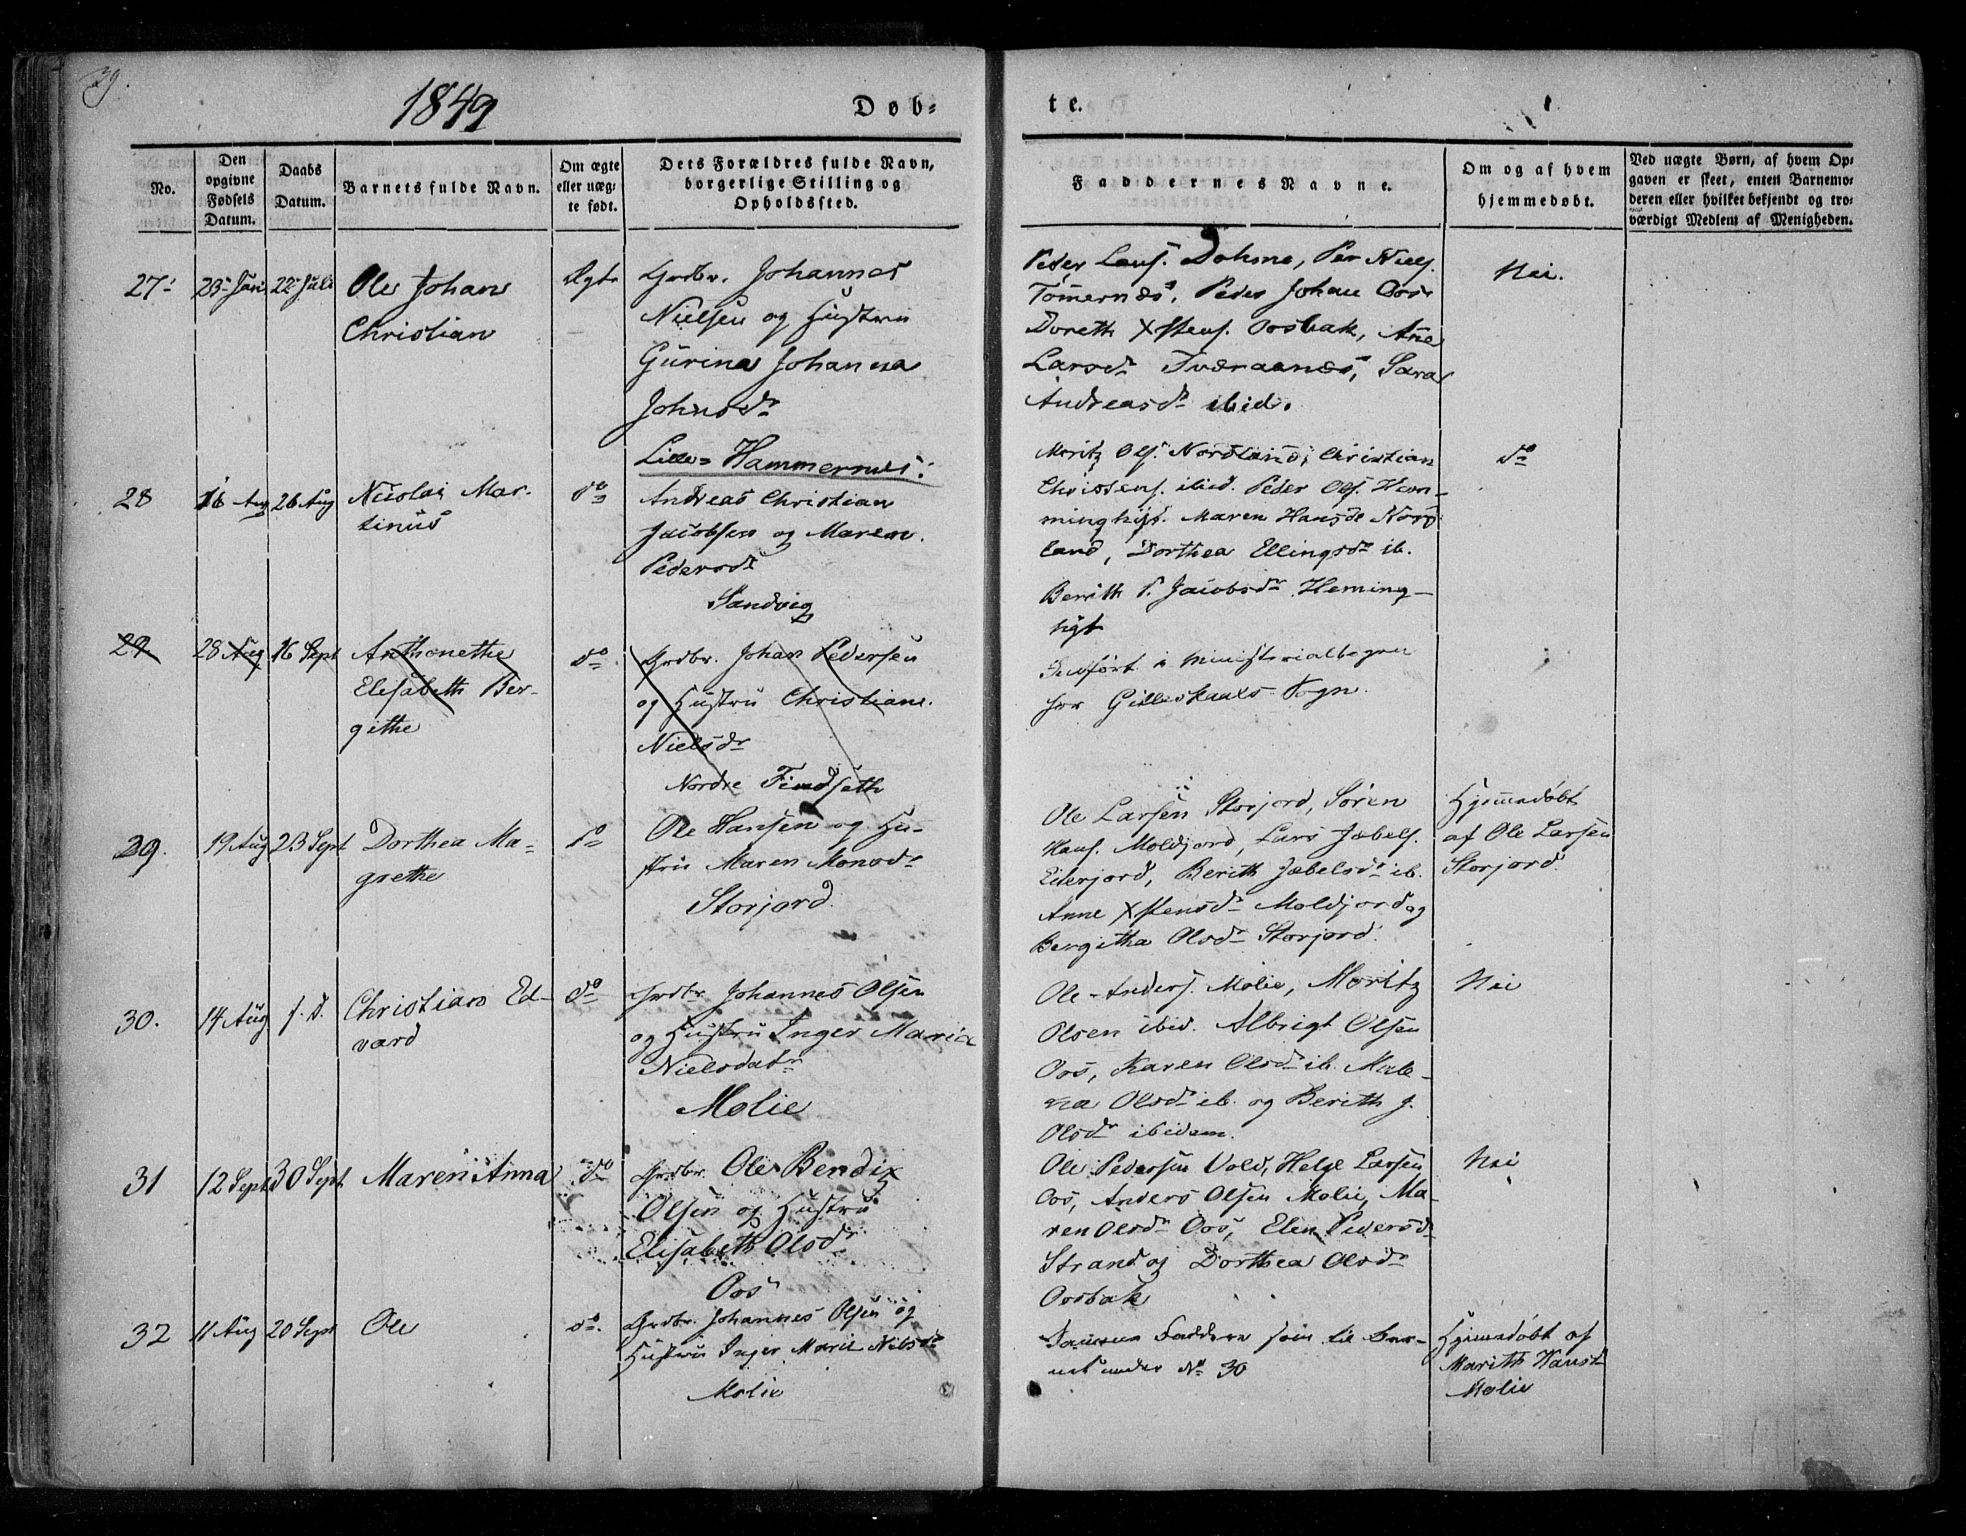 39.
1849
Døb-
te.
No.
Den opgivne Fødsels Datum.
Daabs Datum.
Barnets fulde Navn.
Om ægte eller uæg-te født.
Dets Forældres fulde Navn, borgerlige Stilling og Opholdssted.
Faddernes Navne.
Om og af hvem hjemmedøbt.
Ved uægte Børn, af hvem Op-gaven er skeet, enten Barnemo-deren eller hvilket bekjendt og tro-værdigt Medlem af Menigheden.
27.
23 Juni
22 Juli
Ole Johan
Christian
Ægte
Grdbr. Johannes
Nielsen og Hustru
Gurina Johanna
Johnsdr
Lille-Hammernes:
Peder Lars. Dohmo, Per Niels.
Tömernæs, Peder Johan Oos
Doreth Xstens. Oosbak, Ane
Larsdr Tværaanæs, Sara
Andreasdr ibid.
Nei.
28
16 Aug
26 Aug
Nicolai Mar-
tinus
do
Andreas Christian
Jacobsen og Maren
Pedersdr
Sandvig
Moritz Ols. Nordland, Christian
ibid. Peder Ols. Hem-
Maren Hansdr Nord
land, Dorthea Ellingsdr ib.
Berith P. Jacobsdr Heming-
do
29
28 Aug
16 Sept
Anthonethe
Elisabeth Ber-
githe
do
Grdbr. Johan Pedersen
og Hustru Christiane
Nielsdr
Nordre Findseth
Indført i Ministerialbogen
for Gilleskaals Sogn.
29.
19 Aug
23 Sept
Dorthea Ma-
grethe
do
Ole Hansen og Hu-
stru Maren Monsdr
Storjord.
Ole Larsen Storjord, Søren
Hans. Moldjord, Lars Jæbels.
Eiterjord, Berith Jæbelsdr ib.
Anne Xstensdr Moldjord og
Bergitha Olsdr Storjord.
Hjemmedøbt
af Ole Larsen
Storjord.
30.
14 Aug
s. D.
Christian Ed-
vard
do
Grdbr. Johannes Olsen
og Hustru Inger Maria
Nielsdatr
Molie
Ole Anders. Molie, Moritz
Olsen ibid. Albrigt Olsen
Oos, Karen Olsdr ib. Male-
na Olsdr ib. og Berith J.
Olsdr ibidem.
Nei
31
12 Sept
30 Sept
Maren Anna
do
Grdbr. Ole Bendix
Olsen og Hustru
Elisabeth Olsdr
Oos
Ole Pedersen Vold, Helge Larsen
Oos, Anders Olsen Molie, Ma-
ren Olsdr Oos, Elen Pedersdr
Strand og Dorthea Olsdr
Oosbak
Nei
32
11 Aug
20 Sept
Ole
do.
Grdbr. Johannes Olsen og
Hustru Inger Marie Nilsdr
Molie
Samme Faddere som til Bar-
net under No 30
Hjemmedøbt af
Marith Hansd
Molie